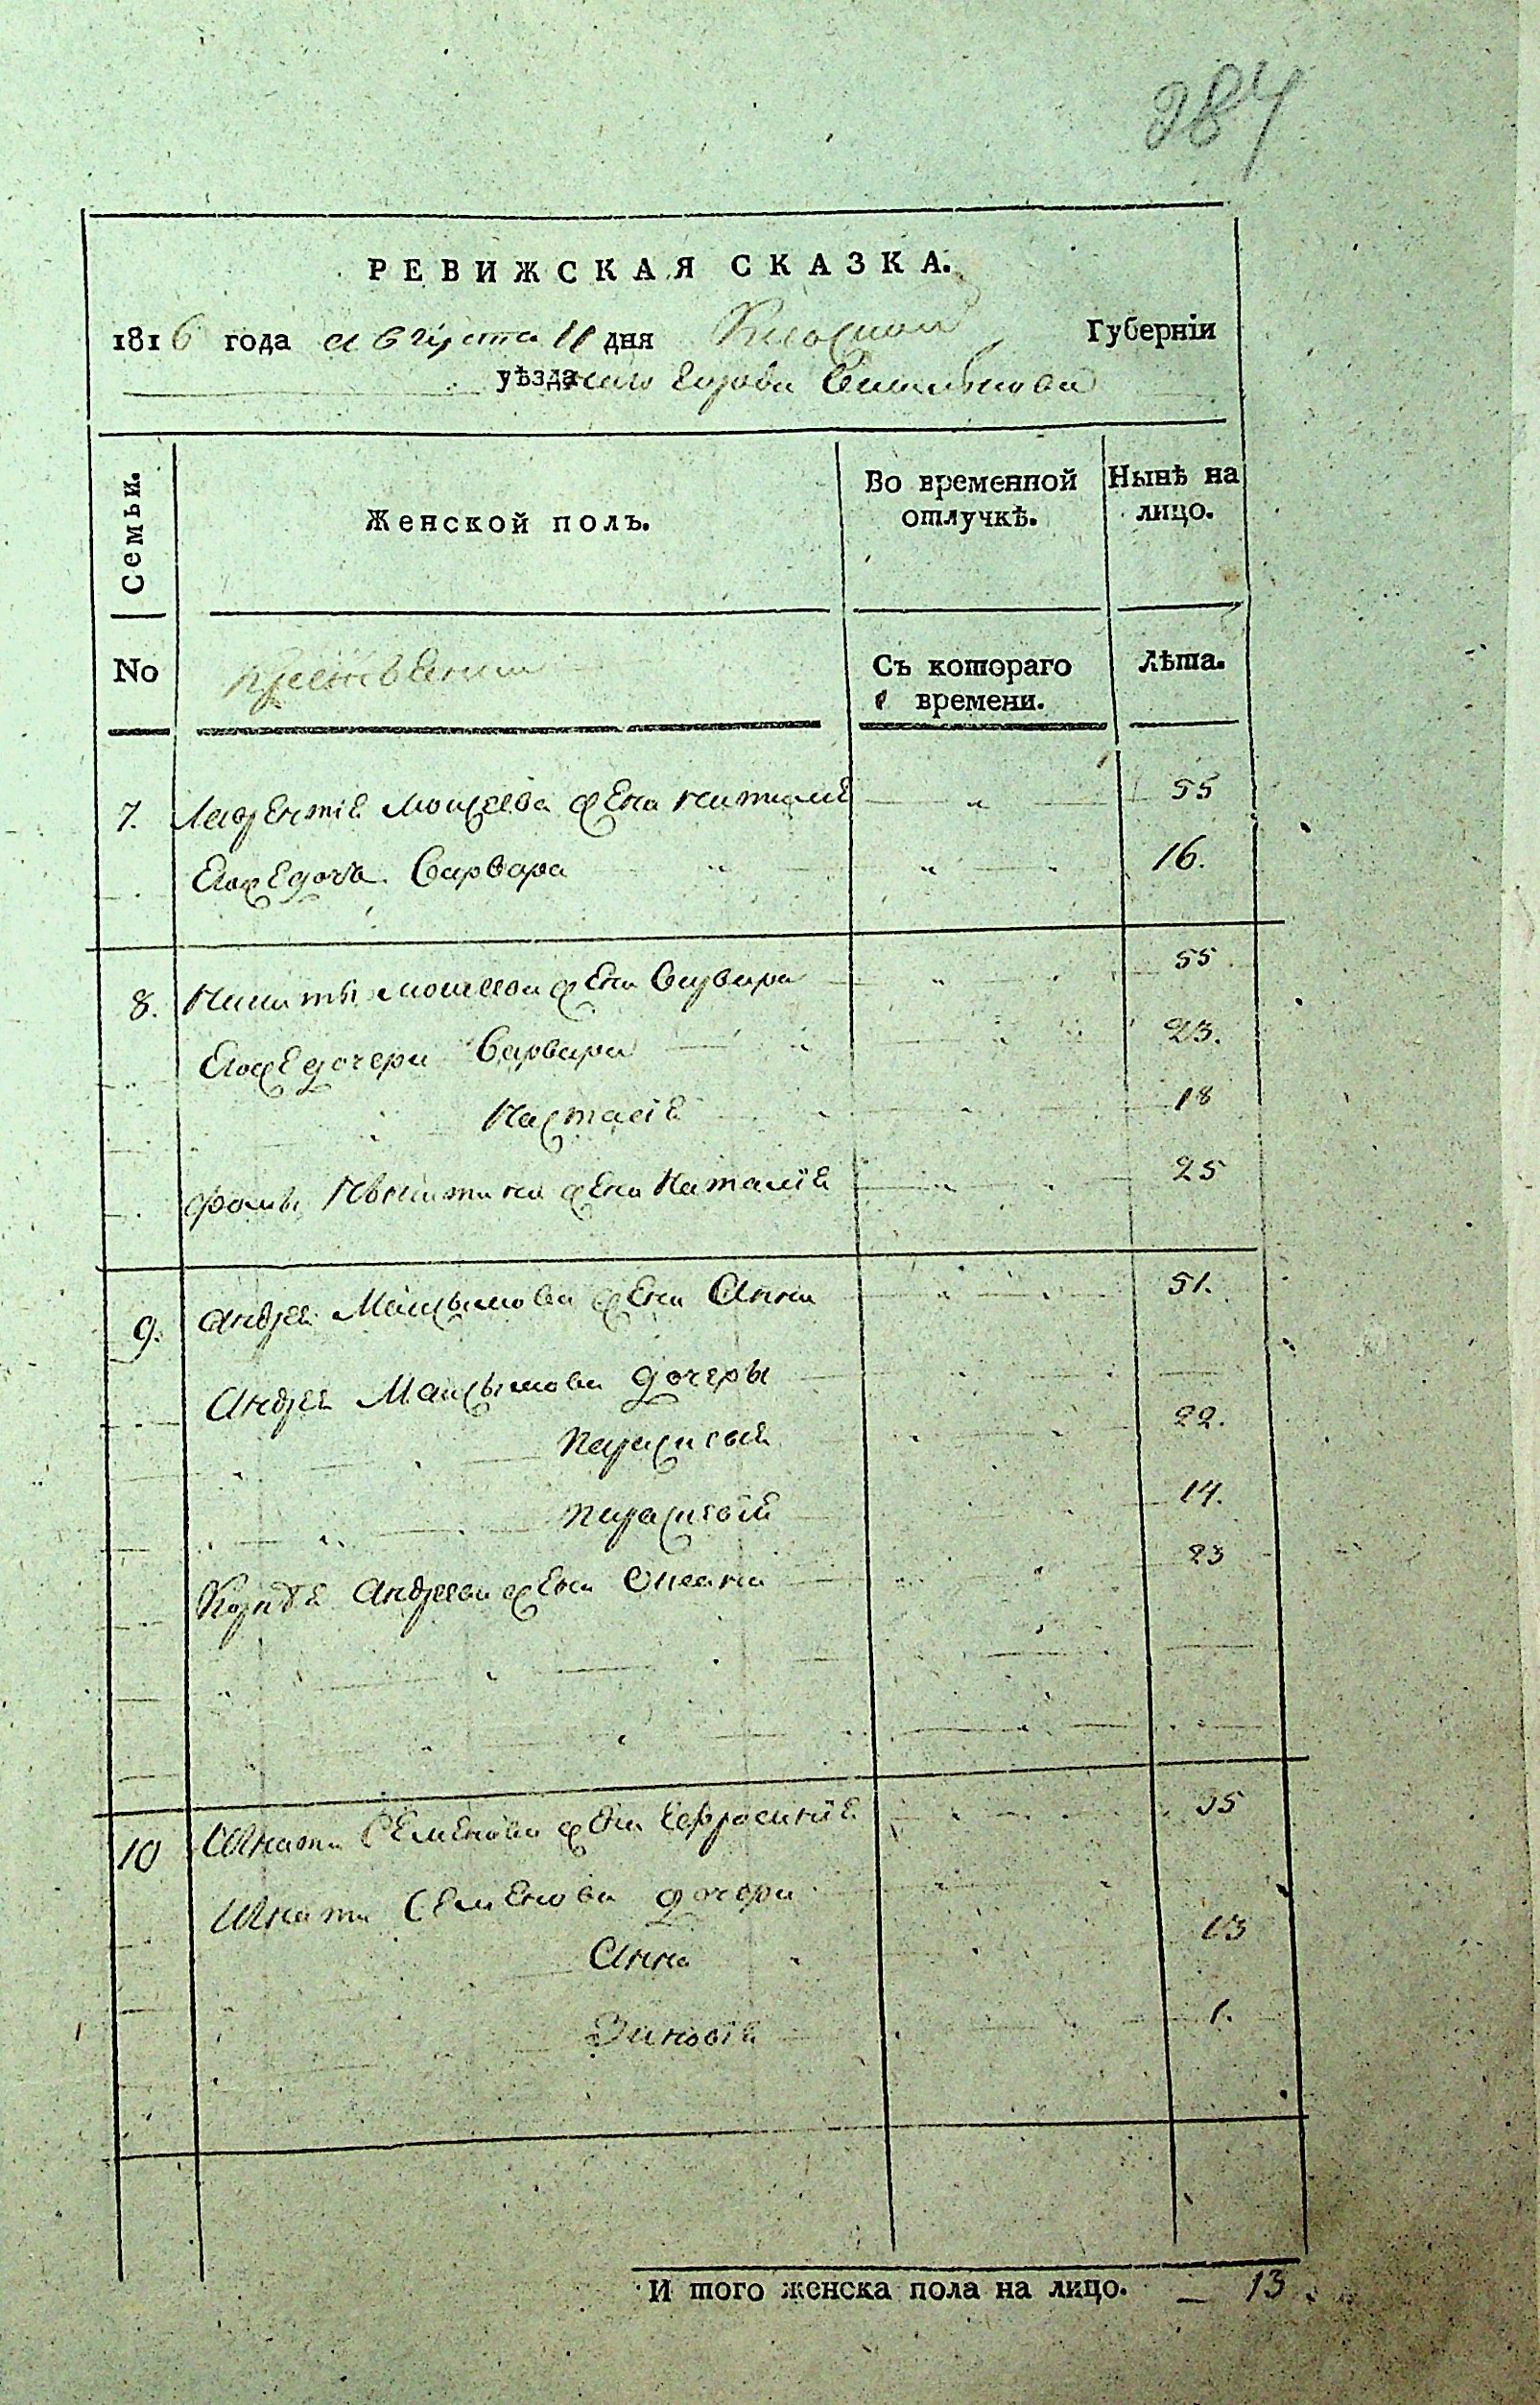 284
РЕВИЖСКАЯ СКАЗКА.
1816 года августа 11 дня Киевской Губерніи
уѣзда
Семьи.
Женской полъ.
Во временной отлучкѣ.
Нынѣ на лицо.
No
Съ котораго времени.
Лѣта.
7. Лаврентіе Моисеева жена Наталіе 55
Егожедочь Варвара 16.
8. Никиты Моисеева жена Варвара 55
Егоже дочери Варвара 23.
Настасіе 18
Фомы Никитина жена Наталіе 25
9. Андрея Максымова жена Анна 51.
Андрея Максымова дочеры
Парасковіе 22.
Парасковіе 14.
Андреева жена 23
10 Игната Семенова жена Ефросиніе 35
Игната Семенова дочери
Анна 13
Зиновіе 1.
И того женска пола на лицо. 13